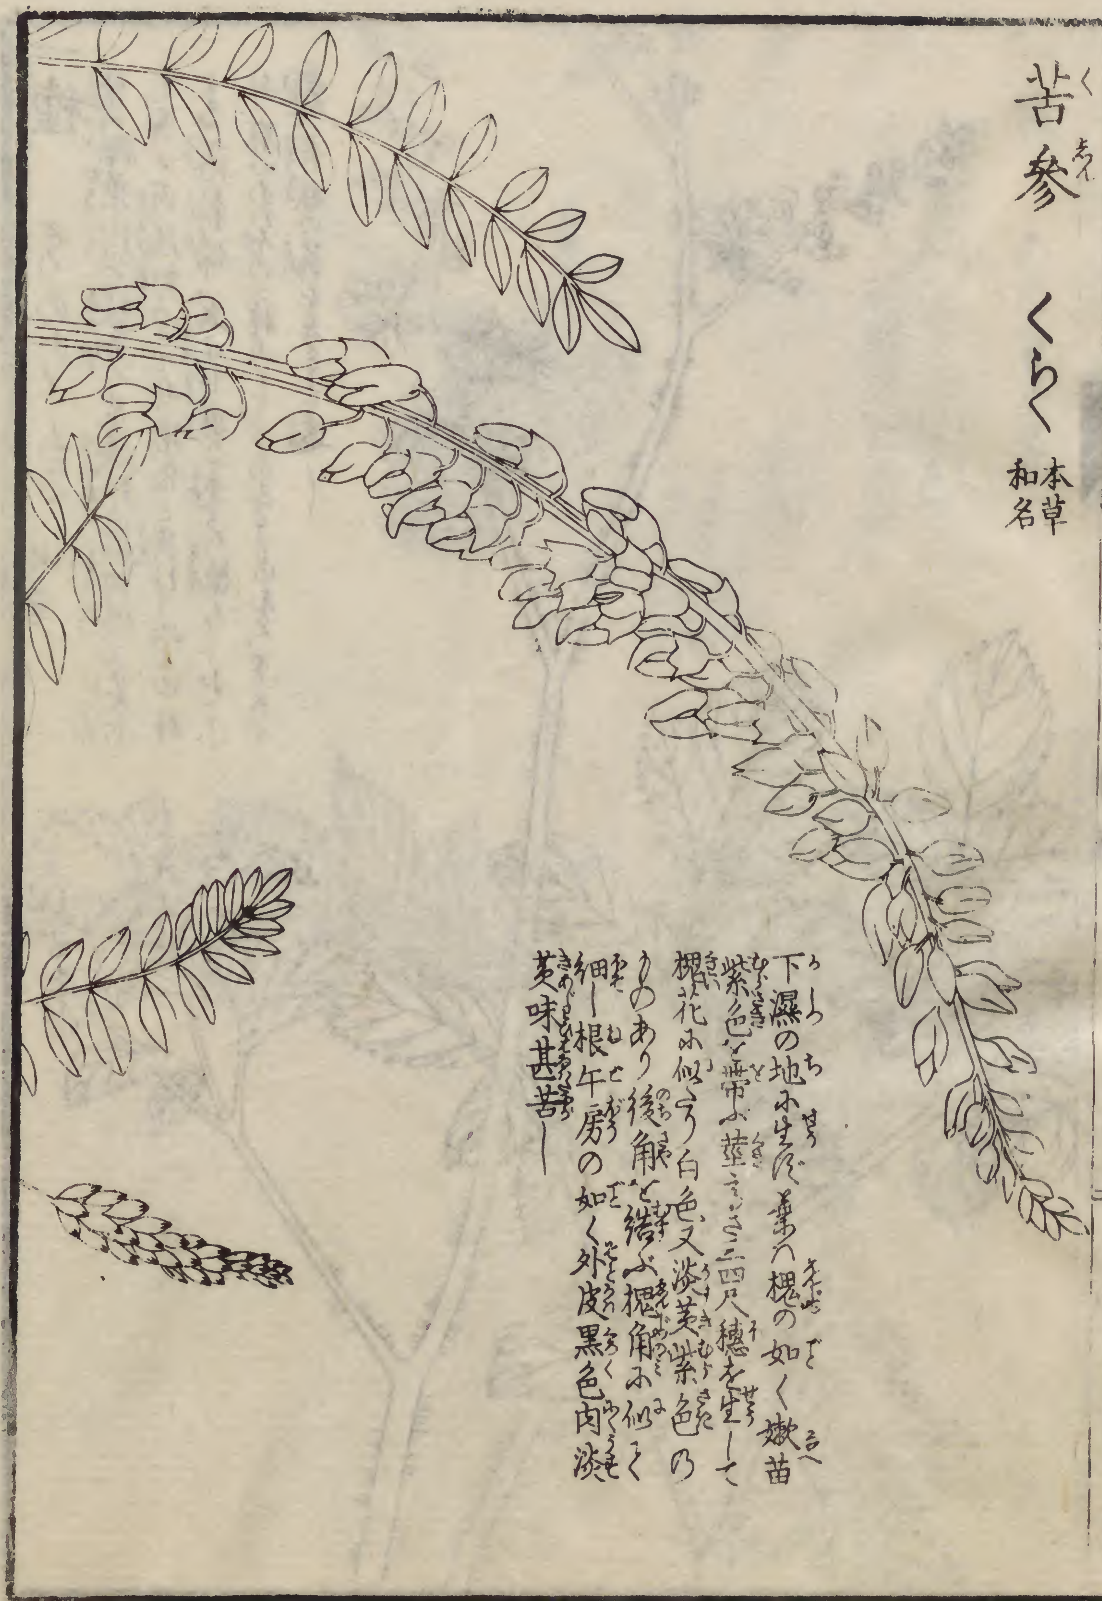 苦參 くらく 本草
和名
下濕の地に生ず葉ハ槐の如く嫩苗
紫色を帶ぶ莖高さ三四尺穗を生して
槐花に似たり白色又淡黄紫色の
ものあり後角を結ぶ槐角に似て
細し根午房の如く外皮黒色内淡
黄味甚苦し